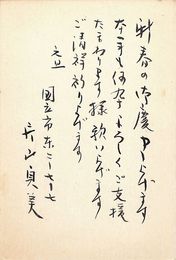 新春の御慶申し上げます
本年も何卒よろしくご支援
たまわります様願い上げます
ご清祥祈り上げます
元旦
国立市東二ー七ー七
美